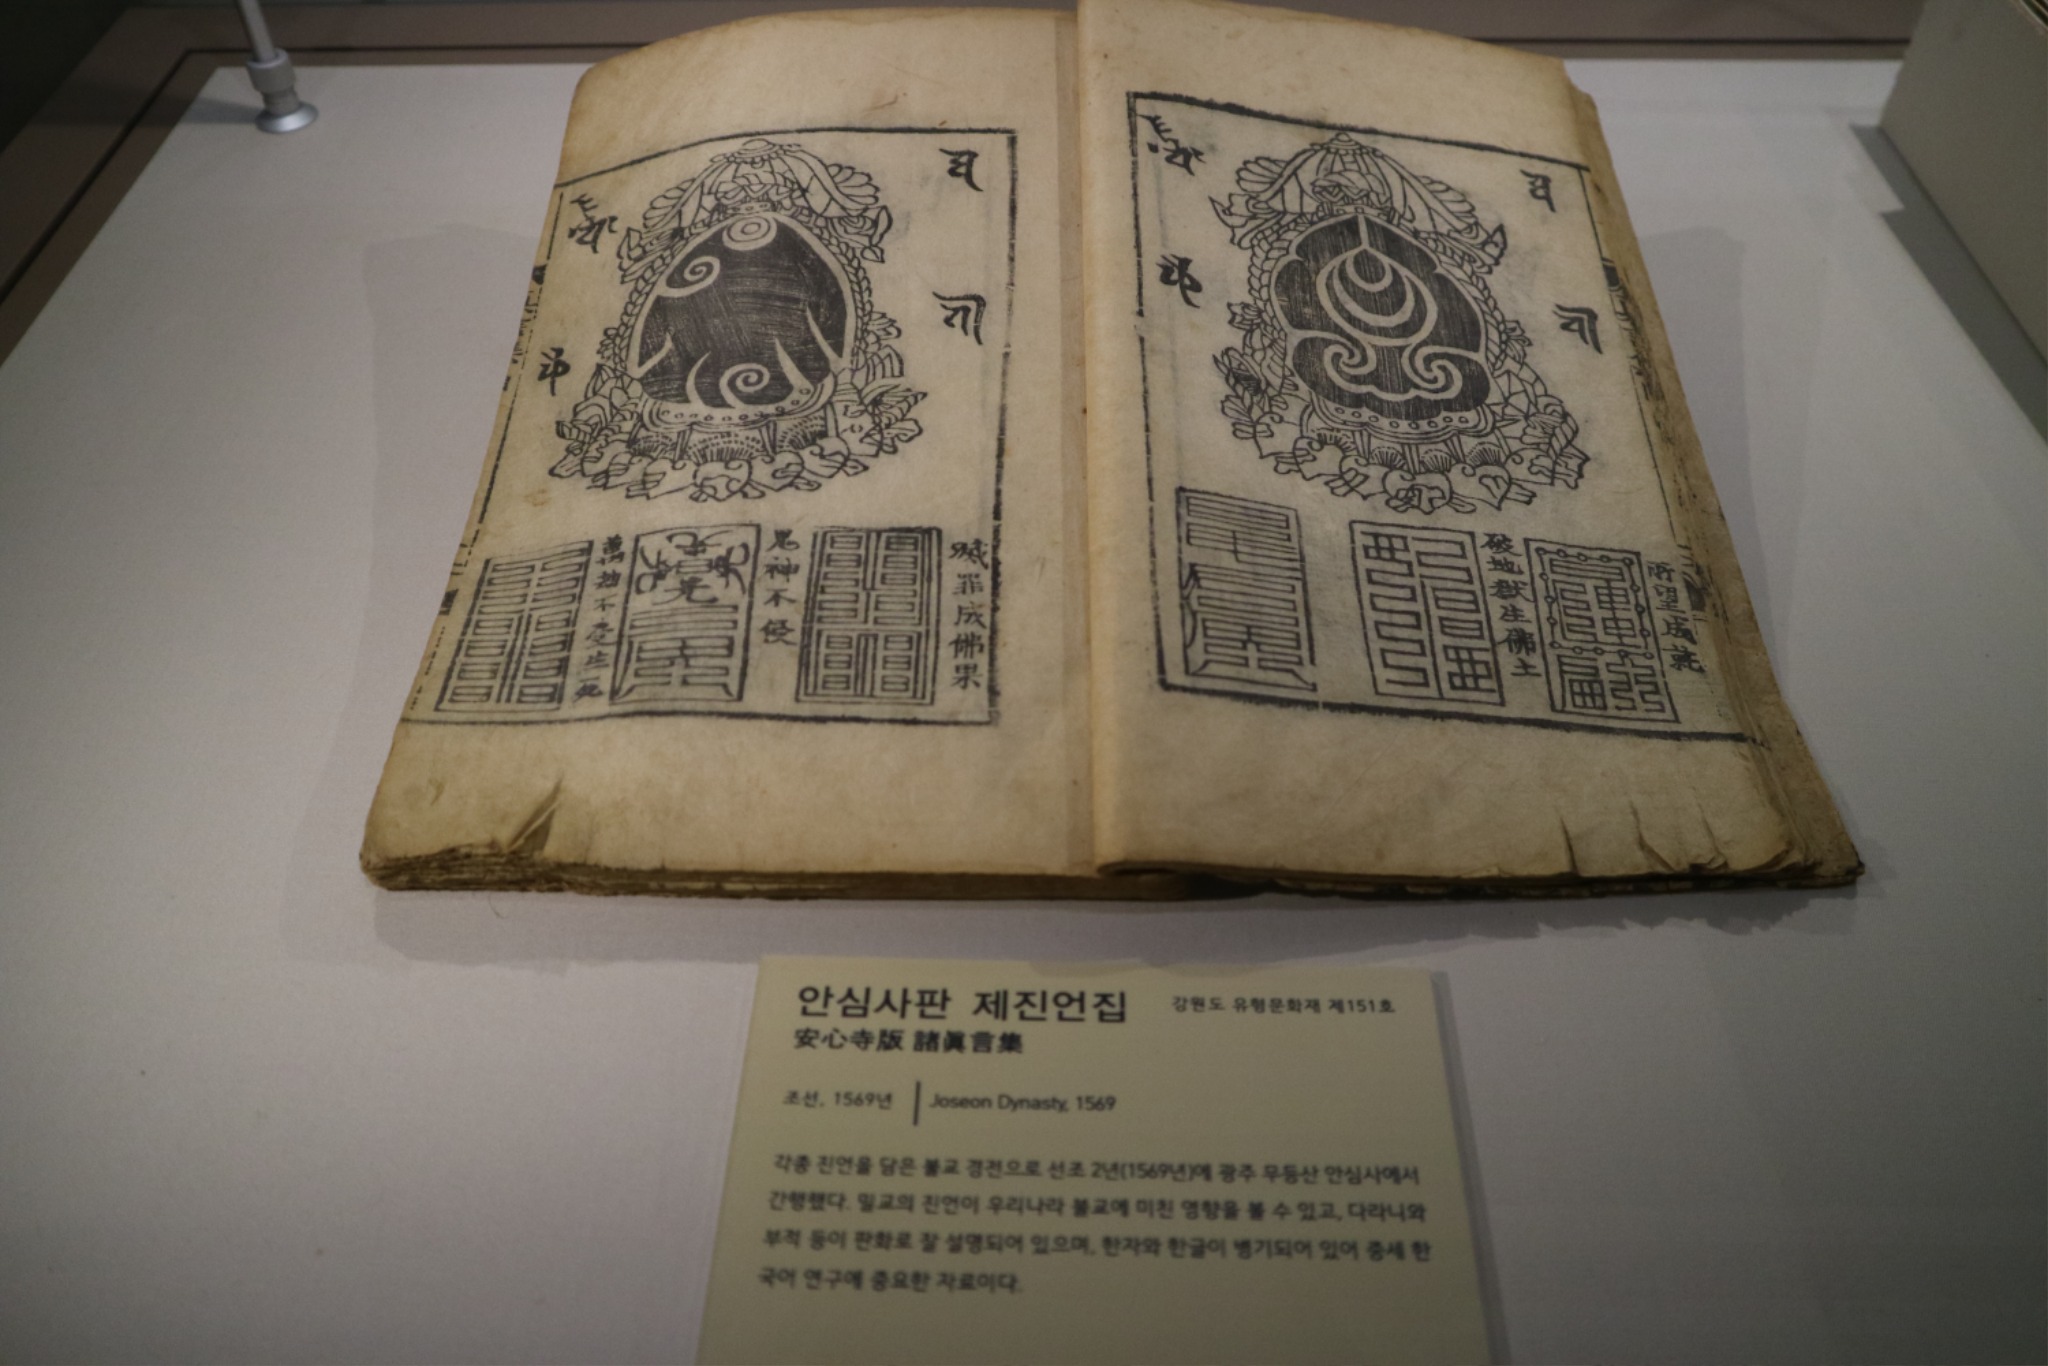 所望成就
破地獄生佛土
滅罪成佛果
鬼神不侵
안심사판 제진언집
강원도 유형문화재 제151호
安心寺版 諸眞言集
조선, 1569년
Joseon Dynasty, 1569
각종 진언을 담은 불교 경전으로 선조 2년(1569년)에 광주 무등산 안심사에서
간행했다. 밀교의 진언이 우리나라 불교에 미친 영향을 볼 수 있고, 다라니와
부적 등이 판화로 잘 설명되어 있으며, 한자와 한글이 병기되어 있어 중세 한
국어 연구에 중요한 자료이다.